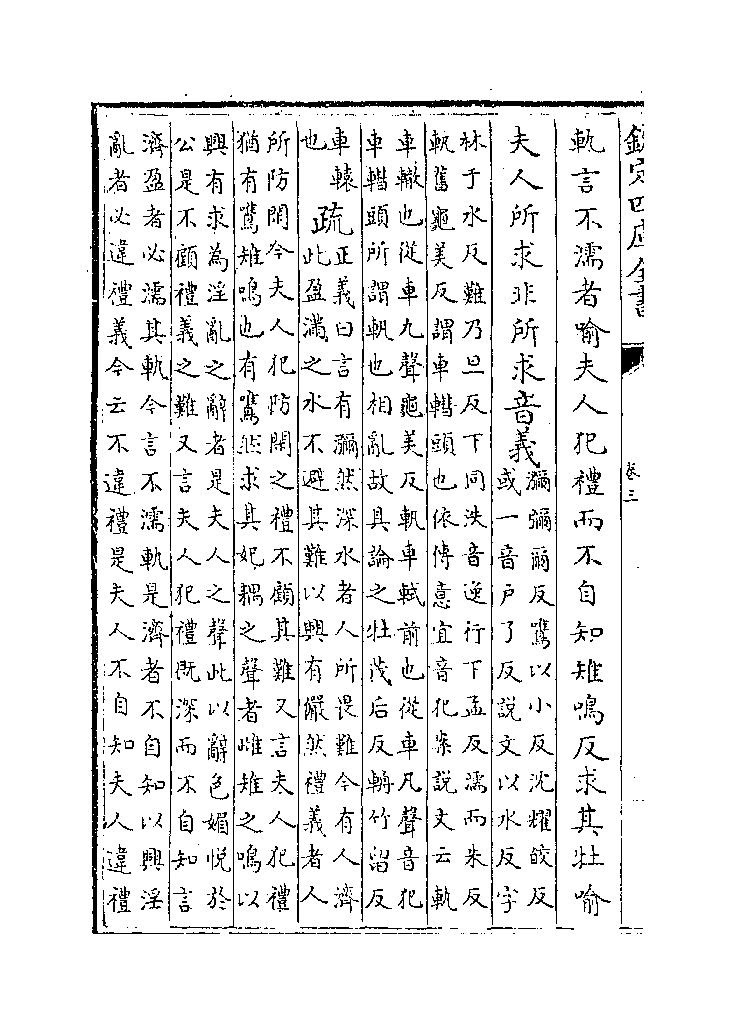 欽定四庫全書
卷三
軌言不濡者喻夫人犯禮而不自知雉鳴反求其牡喻
夫人所求非所求音義
瀰彌爾反鷕以小反沈耀皎反
或一音戸了反說文以水反字
林于水反難乃旦反下同泆音逸行下孟反濡而朱反
軌舊龜美反謂車轊頭也依傳意宜音犯案說文云軌
車轍也從車九聲龜美反軓車軾前也從車凡聲音犯
車轊頭所謂軹也相亂故具論之牡茂后反輈竹留反
車轅
也
疏
正義曰言有瀰然深水者人所畏難今有人濟
此盈滿之水不避其難以興有儼然禮義者人
所防閑今夫人犯防閑之禮不顧其難又言夫人犯禮
猶有鷕雉鳴也有鷕然求其妃耦之聲者雌雉之鳴以
興有求為淫亂之辭者是夫人之聲此以辭色媚悅於
公是不顧禮義之難又言夫人犯禮既深而不自知言
濟盈者必濡其軌今言不濡軌是濟者不自知以興淫
亂者必違禮義今云不違禮是夫人不自知夫人違禮